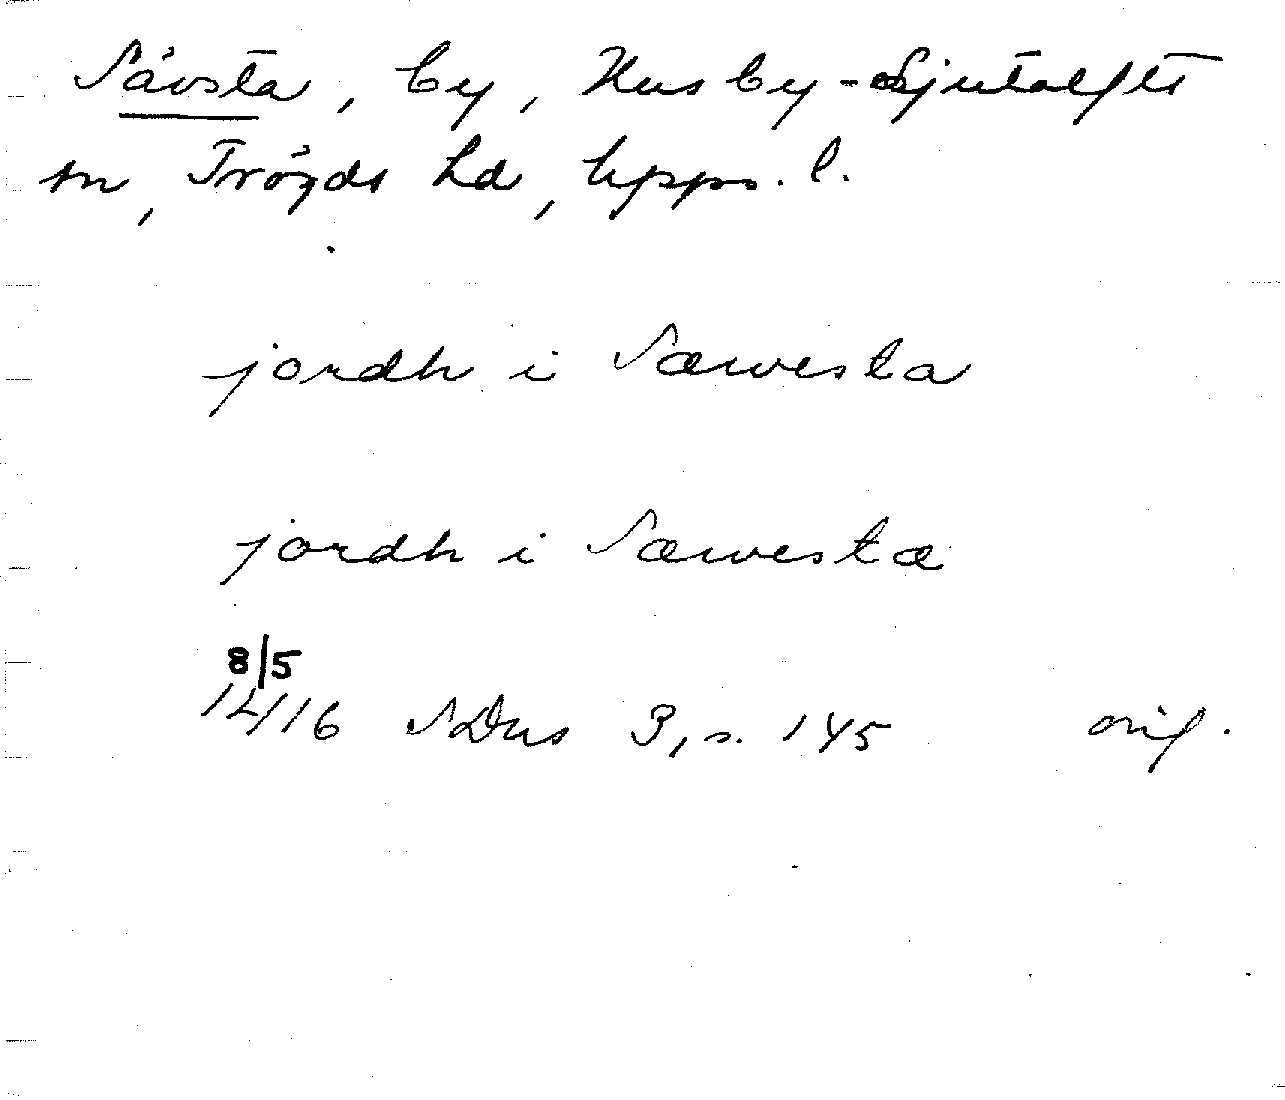 Sävsta, by, Husby-Sjutolfts
sn, Trögds hd, Upps. l.
jordh i Sæwesta
jordh i Sæwestæ
8/5
1416 SDns 3, s. 145 orig.